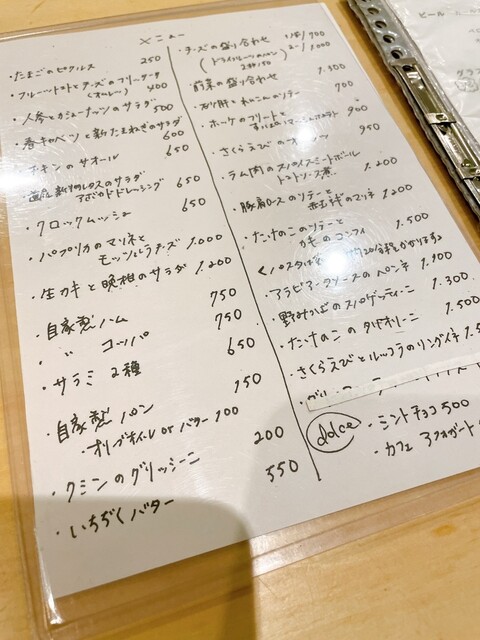 メニュー
・たまごのピクルス 250
・フルーツトマトとチーズのフリッタータ 400
(オムレツ)
・人参とカシューナッツのサラダ 500
・春キャベツと新たまねぎのサラダ 600
・チキンのサオール 650
サラダ
アボカドドレッシング 650
・クロックムッシュ 650
・パプリカのマリネと
モッツァレラチーズ 1,000
・生カキと晩柑のサラダ 1,200
・自家製ハム 750
〃 コッパ 750
・サラミ2種 650
・自家製パン 150
・オリーブオイル or バター 100
・クミンのグリッシーニ 200
・いちぢくバター 550
・チーズの盛り合わせ 700
(ドライフルーツ 1,000
前菜の盛り合わせ 1,300
・砂肝とれんこんのソテー 900
・ホッケのフリットと 900
・さくらえびの 950
・ラム肉の ミートボール
トマトソース煮 1,200
・豚肩ロースのソテーと 1,200
・たけのこのソテーと
カキのコンフィ 1,500
・アラビアータソースのペンネ 1,100
・野みつばのスパゲッティーニ 1,300
・たけのこのタリオリーニ 1,500
・さくらえびとルッコラのリングイネ
dolce
・ミントチョコ 500
・カフェアフォガート
ビール